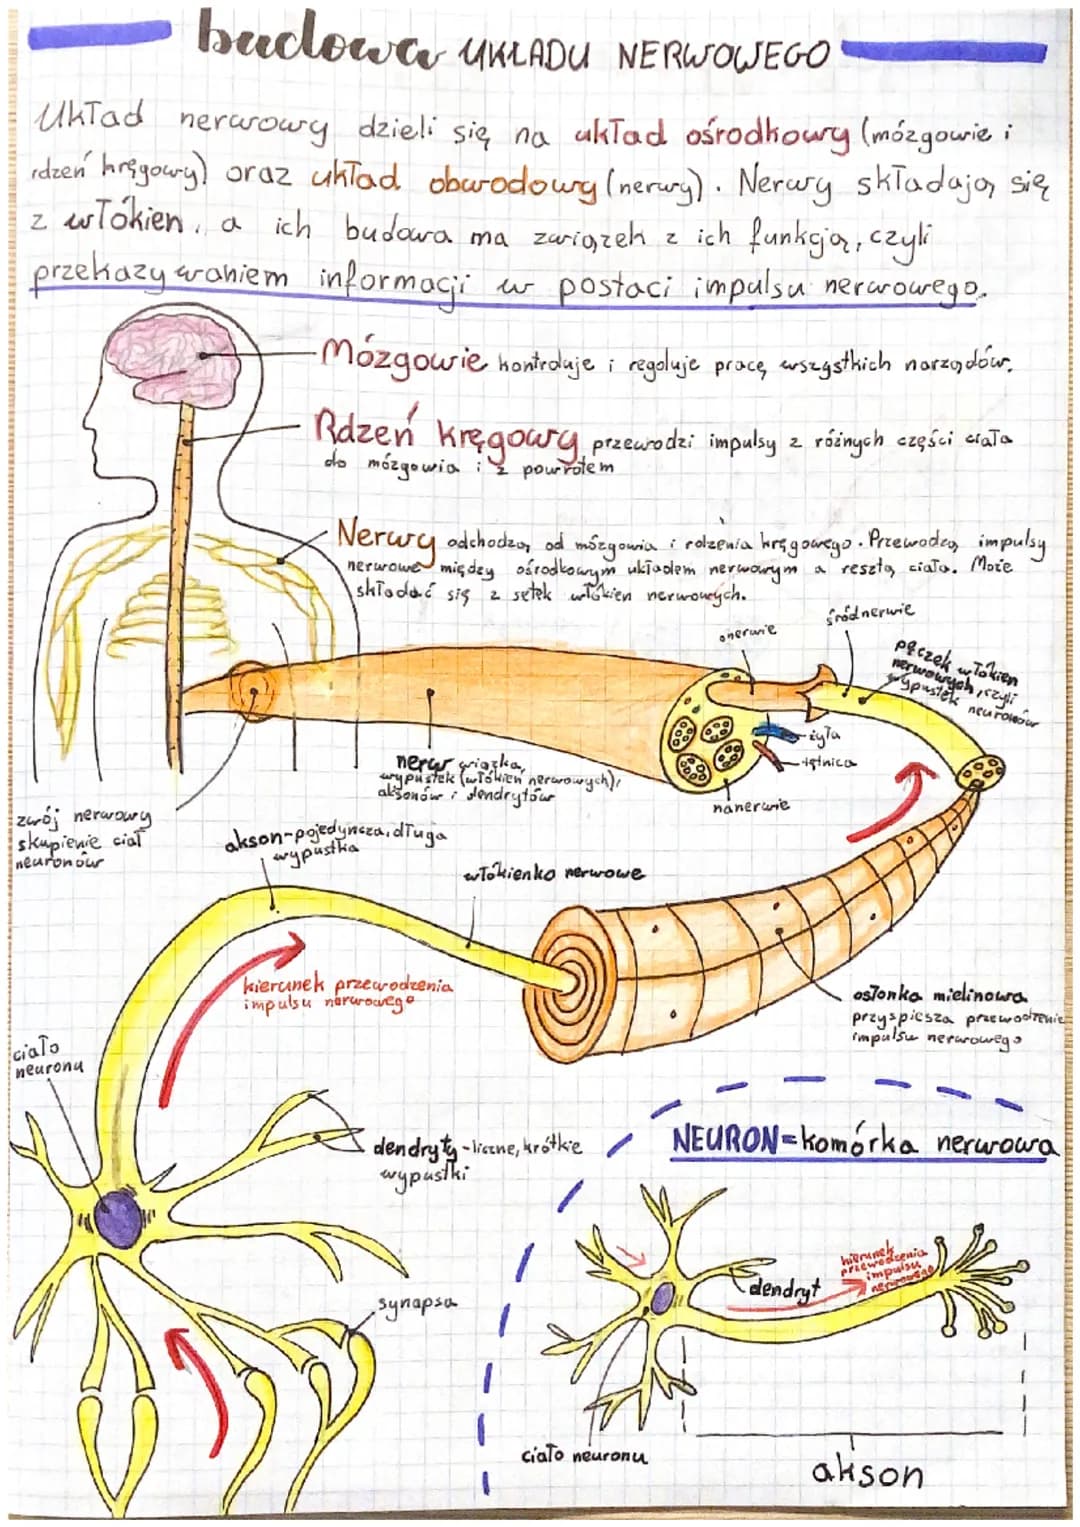 budowa UKŁADU NERWOWEGO
Układ nerwowy dzieli się na układ ośrodkowy (mózgowie i
rdzeń kręgowy) oraz układ obwodowy (nerwy). Nerwy składają się
z włókien, a ich budowa ma związek z ich funkcją, czyli
przekazywaniem informacji w postaci impulsu nerwowego.
Mózgowie kontroluje i reguluje pracę wszystkich narządów.
Rdzeń kręgowy przewodzi impulsy z różnych części ciała
do mózgowia i z powrotem
Nerwy odchodzą od mózgowia i rdzenia kręgowego. Przewodzą impulsy
nerwowe między ośrodkowym układem nerwowym a resztą ciała. Może
składać się z setek włókien nerwowych.
onerwie
śródnerwie
pęczek włókien
nerwowych, czyli
wypustek neuronów
żyła
tętnica
nanerwie
nerw wiązka,
wypustek (włókien nerwowych),
aksonów i dendrytów
zwój nerwowy
skupienie ciał
neuronów
akson-pojedyncza, długa
wypustka
włókienko nerwowe
kierunek przewodzenia
impulsu nerwowego
osłonka mielinowa
przyspiesza przewodzenie
impulsu nerwowego
ciało
neuronu
dendryty-liczne, krótkie
wypustki
synapsa
NEURON=komórka nerwowa
dendryt
kierunek
przewodzenia
impulsu
nerwowego
ciało neuronu
akson